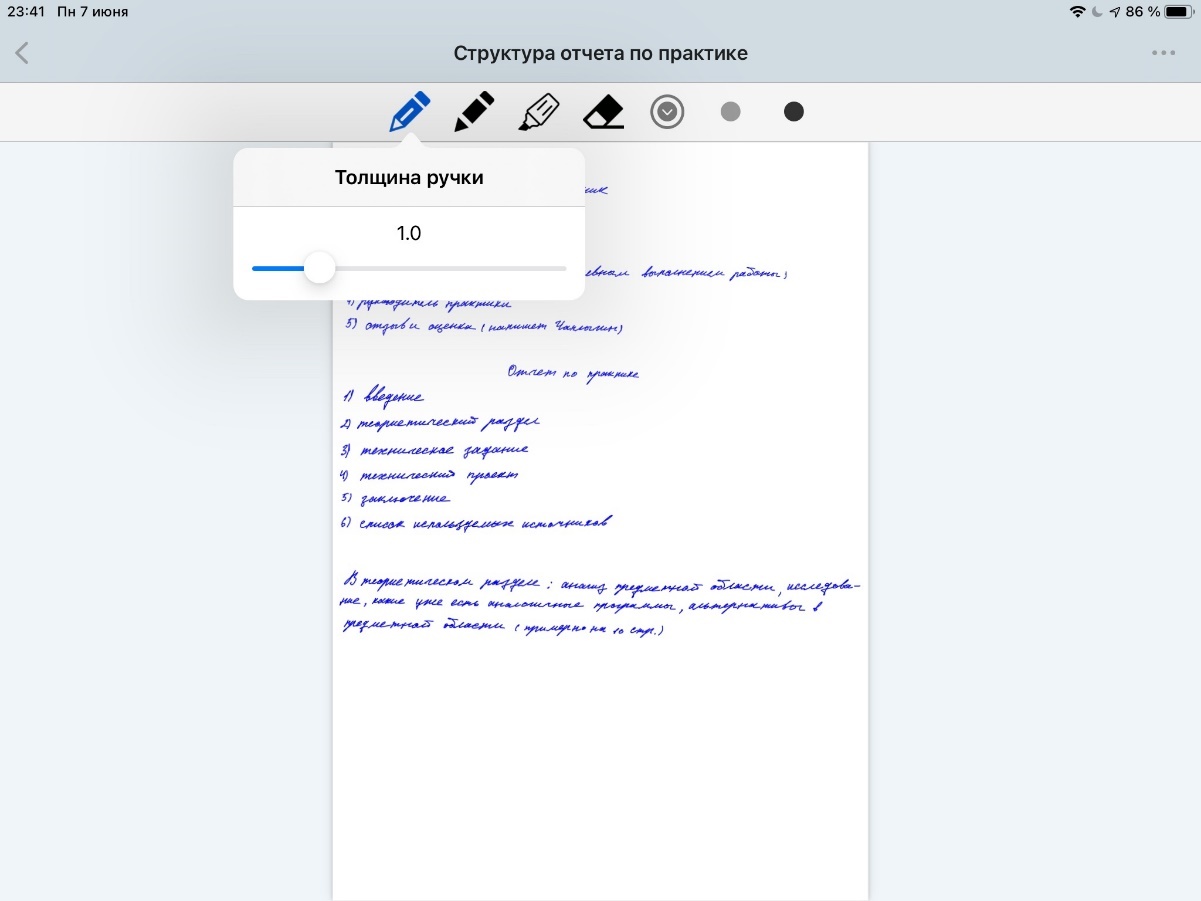 23:41 Пн 7 июня 86 %
Структура отчета по практике
Толщина ручки
1.0
выполнением работы;
4) руководитель практики
5) отзыв и оценка (напишет
Отчет по практике
1) введение
2) теоретический раздел
3) техническое задание
4) технический проект
5) заключение
6) список используемых источников
В теоретическом разделе : анализ предметной области, исследова-
ние, какие уже есть аналогичные программы, альтернативы в
предметной области (примерно на 10 стр.)